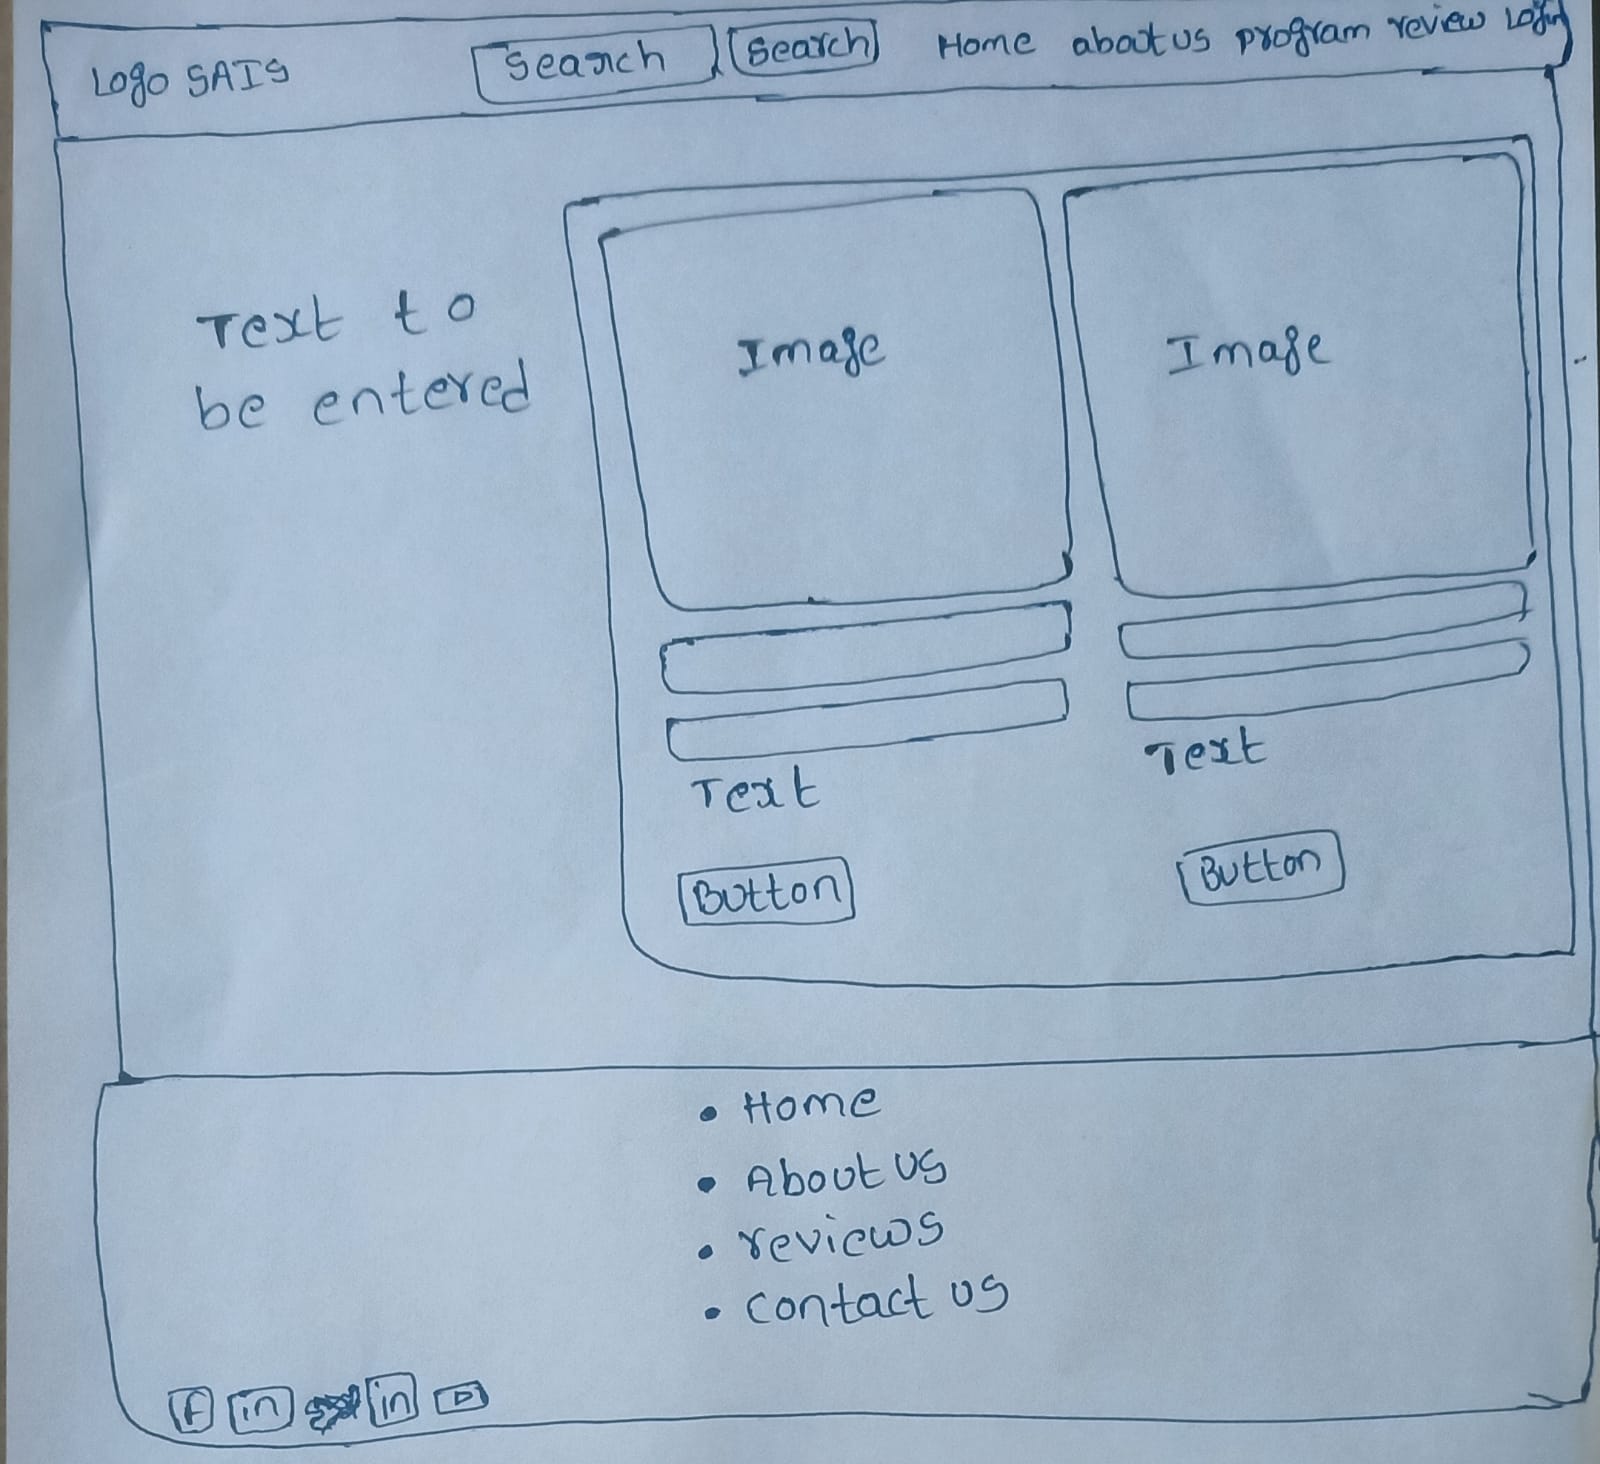 Logo SAIS Search Search Home about us program review Login
Text to
be entered
Image Image
Text Text
Button Button
• Home
• About us
• reviews
• contact us
f in in